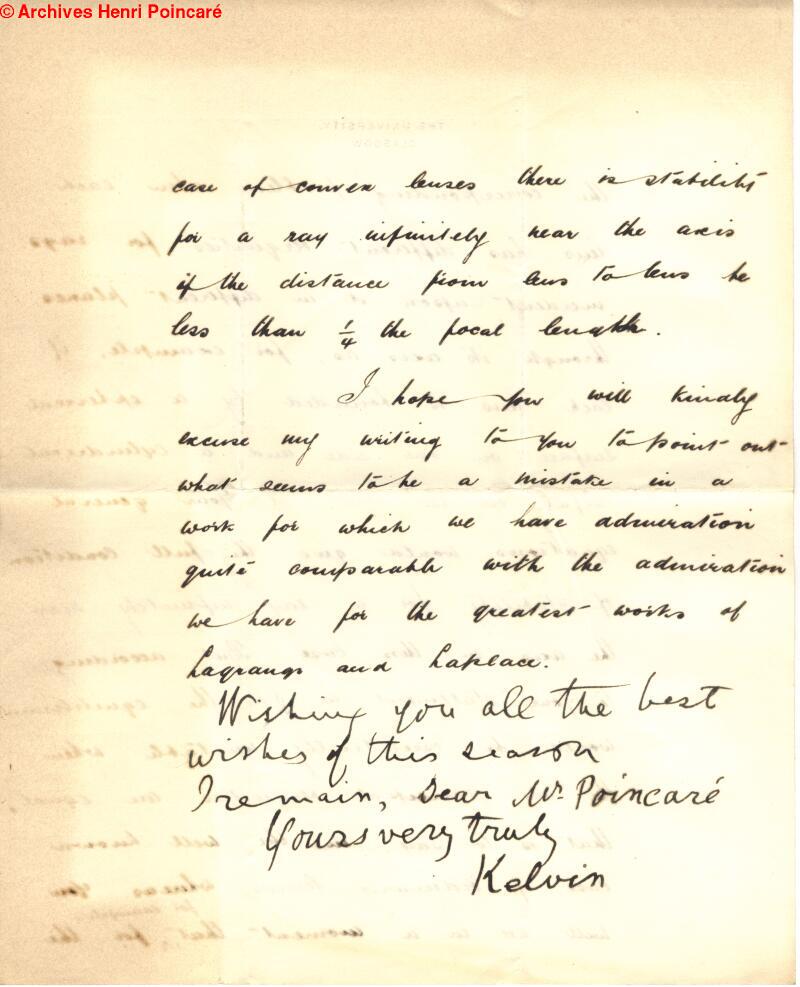 © Archives Henri Poincaré
THE UNIVERSITY,
GLASGOW
case of convex lenses there is stability
for a ray infinitely near the axis
if the distance from lens to lens be
less than 1/4 the focal length.
I hope you will kindly
excuse my writing to you to point out
what seems to be a mistake in a
work for which we have admiration
quite comparable with the admiration
we have for the greatest works of
Lagrange and Laplace.
Wishing you all the best
wishes of this season
I remain, Dear Mr. Poincaré
Yours very truly
Kelvin